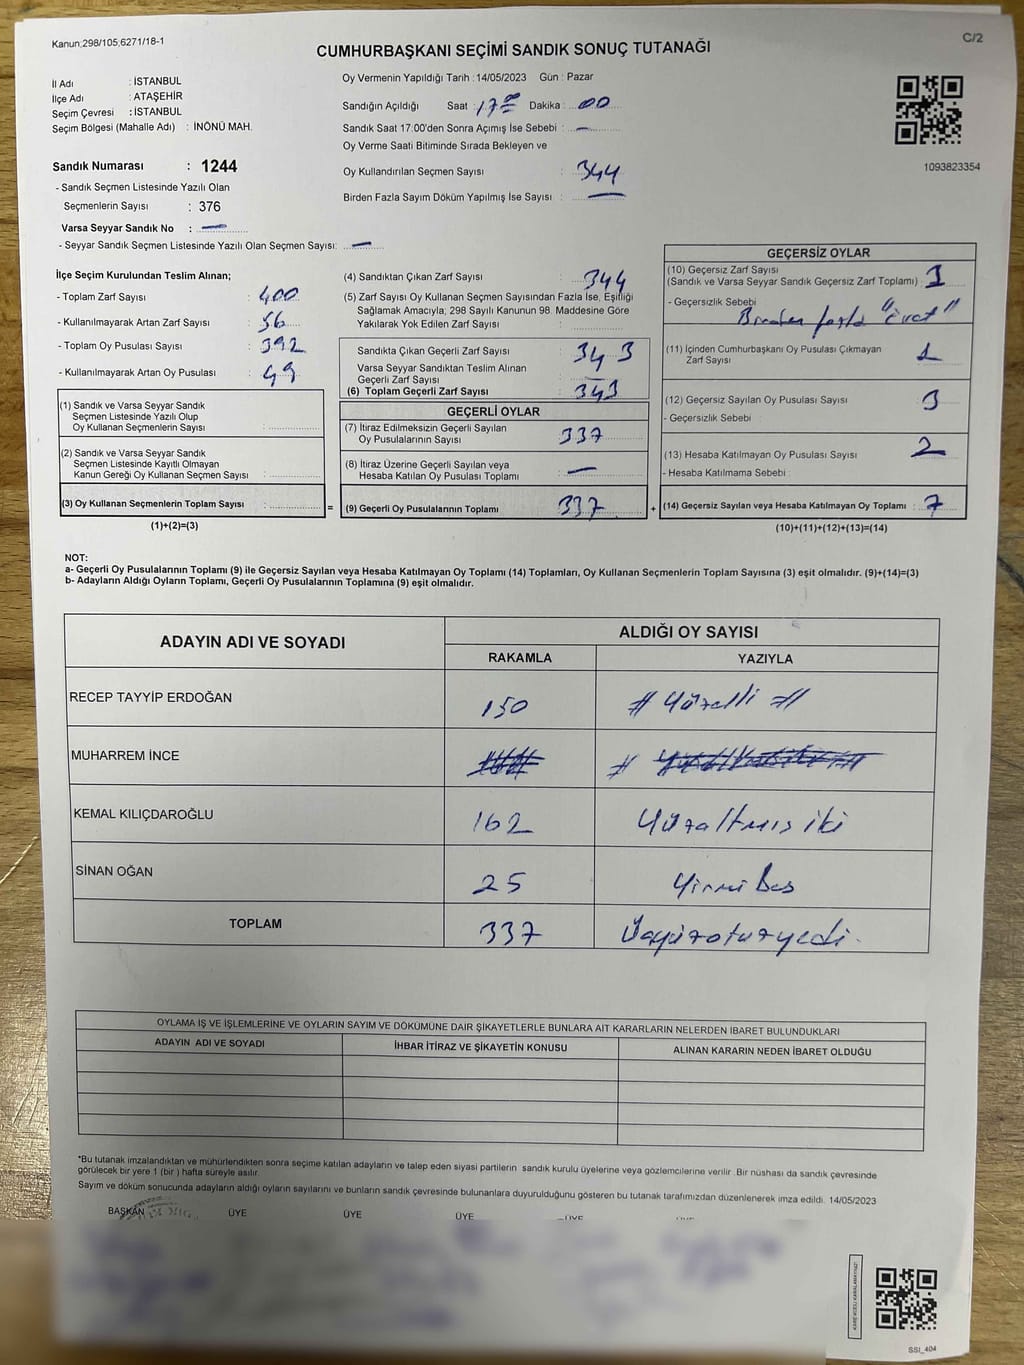 Kanun;298/105;6271/18-1
C/2
CUMHURBAŞKANI SEÇİMİ SANDIK SONUÇ TUTANAĞI
İl Adı : İSTANBUL
İlçe Adı : ATAŞEHİR
Seçim Çevresi : İSTANBUL
Seçim Bölgesi (Mahalle Adı) : İNÖNÜ MAH.
Oy Vermenin Yapıldığı Tarih : 14/05/2023 Gün : Pazar
Sandığın Açıldığı Saat : 17 00 Dakika : 00
Sandık Saat 17:00'den Sonra Açımış İse Sebebi : —
Oy Verme Saati Bitiminde Sırada Bekleyen ve
Oy Kullandırılan Seçmen Sayısı : 344
Birden Fazla Sayım Döküm Yapılmış İse Sayısı : —
1093823354
Sandık Numarası : 1244
- Sandık Seçmen Listesinde Yazılı Olan
Seçmenlerin Sayısı : 376
Varsa Seyyar Sandık No : —
- Seyyar Sandık Seçmen Listesinde Yazılı Olan Seçmen Sayısı: —
İlçe Seçim Kurulundan Teslim Alınan;
- Toplam Zarf Sayısı : 400
- Kullanılmayarak Artan Zarf Sayısı : 56
- Toplam Oy Pusulası Sayısı : 392
- Kullanılmayarak Artan Oy Pusulası : 49
(1) Sandık ve Varsa Seyyar Sandık
Seçmen Listesinde Yazılı Olup
Oy Kullanan Seçmenlerin Sayısı :
(2) Sandık ve Varsa Seyyar Sandık
Seçmen Listesinde Kayıtlı Olmayan
Kanun Gereği Oy Kullanan Seçmen Sayısı :
(3) Oy Kullanan Seçmenlerin Toplam Sayısı :
(1)+(2)=(3)
=
(4) Sandıktan Çıkan Zarf Sayısı : 344
(5) Zarf Sayısı Oy Kullanan Seçmen Sayısından Fazla İse, Eşitliği
Sağlamak Amacıyla; 298 Sayılı Kanunun 98. Maddesine Göre
Yakılarak Yok Edilen Zarf Sayısı :
Sandıkta Çıkan Geçerli Zarf Sayısı : 343
Varsa Seyyar Sandıktan Teslim Alınan
Geçerli Zarf Sayısı : —
(6) Toplam Geçerli Zarf Sayısı : 343
GEÇERLİ OYLAR
(7) İtiraz Edilmeksizin Geçerli Sayılan
Oy Pusulalarının Sayısı : 337
(8) İtiraz Üzerine Geçerli Sayılan veya
Hesaba Katılan Oy Pusulası Toplamı : —
(9) Geçerli Oy Pusulalarının Toplamı : 337
+
GEÇERSİZ OYLAR
(10) Geçersiz Zarf Sayısı
(Sandık ve Varsa Seyyar Sandık Geçersiz Zarf Toplamı) : 1
- Geçersizlik Sebebi
: Birden fazla "Evet"
(11) İçinden Cumhurbaşkanı Oy Pusulası Çıkmayan
Zarf Sayısı : 1
(12) Geçersiz Sayılan Oy Pusulası Sayısı : 3
- Geçersizlik Sebebi :
(13) Hesaba Katılmayan Oy Pusulası Sayısı : 2
- Hesaba Katılmama Sebebi :
(14) Geçersiz Sayılan veya Hesaba Katılmayan Oy Toplamı : 7
(10)+(11)+(12)+(13)=(14)
NOT:
a- Geçerli Oy Pusulalarının Toplamı (9) ile Geçersiz Sayılan veya Hesaba Katılmayan Oy Toplamı (14) Toplamları, Oy Kullanan Seçmenlerin Toplam Sayısına (3) eşit olmalıdır. (9)+(14)=(3)
b- Adayların Aldığı Oyların Toplamı, Geçerli Oy Pusulalarının Toplamına (9) eşit olmalıdır.
ADAYIN ADI VE SOYADI ALDIĞI OY SAYISI
RAKAMLA YAZIYLA
RECEP TAYYİP ERDOĞAN 150 # Yüzelli #
MUHARREM İNCE #
KEMAL KILIÇDAROĞLU 162 Yüzaltmış iki
SİNAN OĞAN 25 Yirmi beş
TOPLAM 337 Üçyüzotuzyedi.
OYLAMA İŞ VE İŞLEMLERİNE VE OYLARIN SAYIM VE DÖKÜMÜNE DAİR ŞİKAYETLERLE BUNLARA AİT KARARLARIN NELERDEN İBARET BULUNDUKLARI
ADAYIN ADI VE SOYADI İHBAR İTİRAZ VE ŞİKAYETİN KONUSU ALINAN KARARIN NEDEN İBARET OLDUĞU
*Bu tutanak imzalandıktan ve mühürlendikten sonra seçime katılan adayların ve talep eden siyasi partilerin sandık kurulu üyelerine veya gözlemcilerine verilir .Bir nüshası da sandık çevresinde
görülecek bir yere 1 (bir ) hafta süreyle asılır.
Sayım ve döküm sonucunda adayların aldığı oyların sayılarını ve bunların sandık çevresinde bulunanlara duyurulduğunu gösteren bu tutanak tarafımızdan düzenlenerek imza edildi. 14/05/2023
BAŞKAN ÜYE ÜYE ÜYE ÜYE
KAREKODU KARALAMAYINIZ!
SSI_404